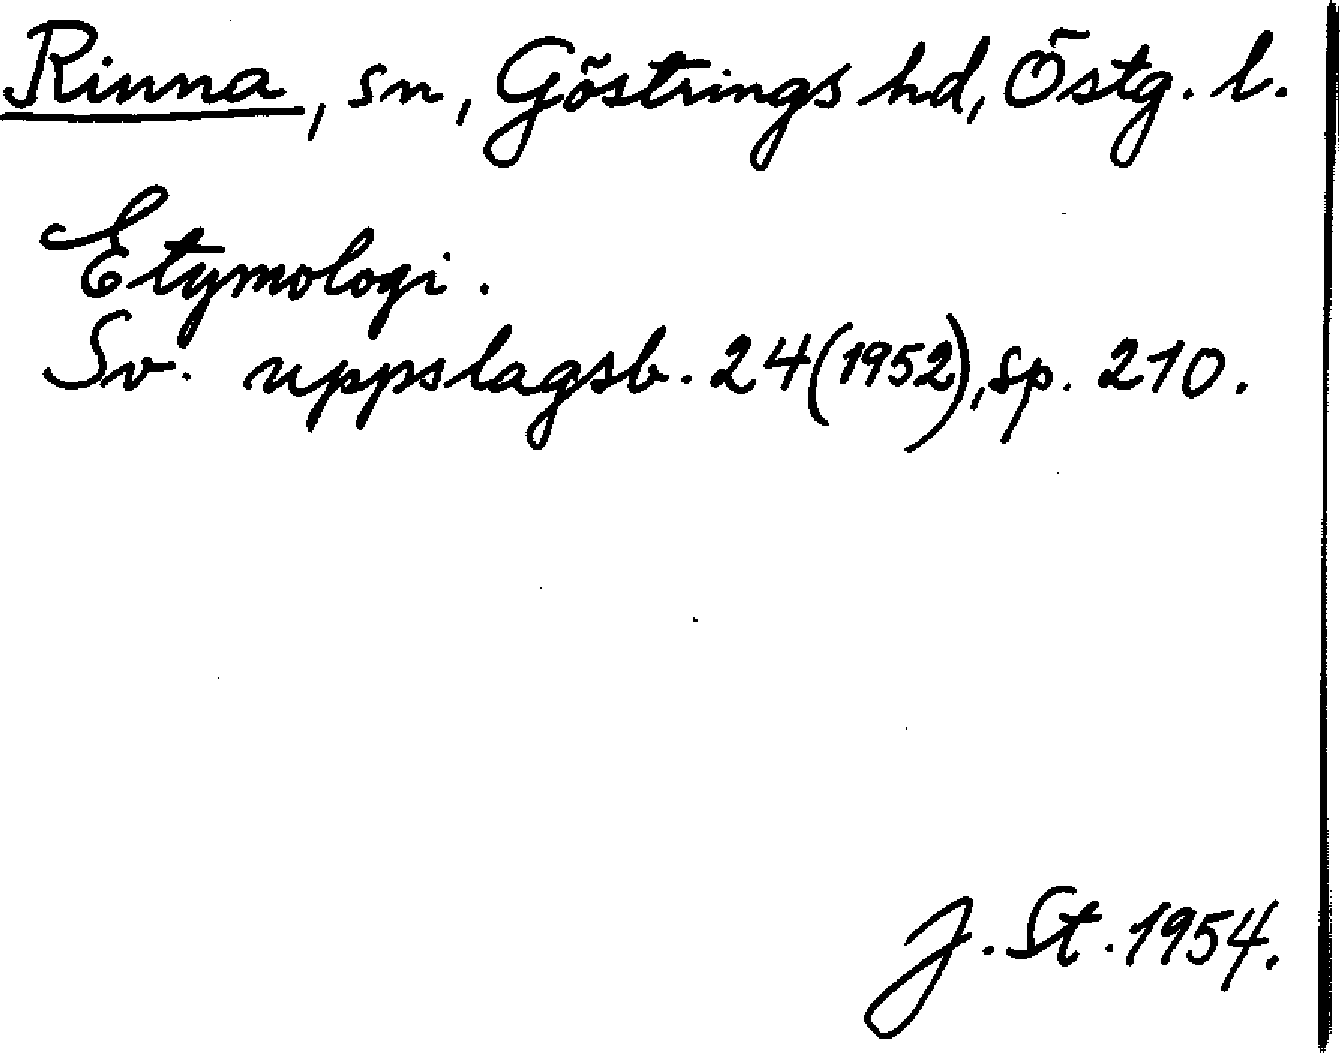 Rinna, sn, Göstrings hd, Östg. l.
Etymologi.
Sv. uppslagsb. 24 (1952), sp. 210.
J. St. 1954.